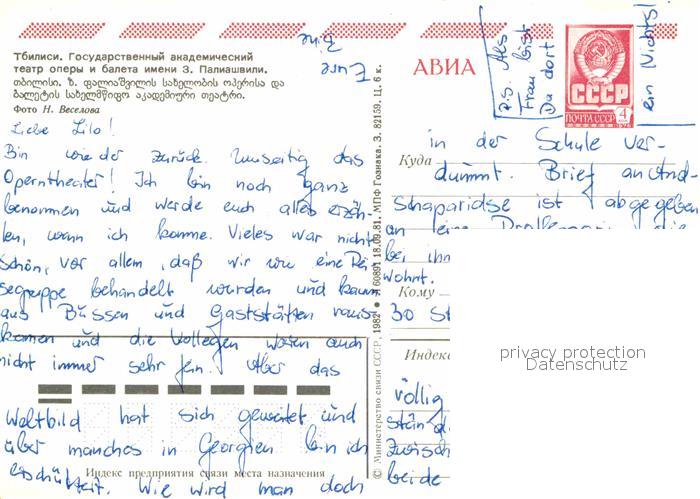 Тбилиси. Государственный академический
театр оперы и балета имени З. Палиашвили.
თბილისი. ზ. ფალიაშვილის სახელობის ოპერისა და
ბალეტის სახელმწიფო აკადემიური თეატრი.
Фото Н. Веселова
Liebe Lilo!
Bin wieder zurück. Umseitig das
Operntheater! Ich bin noch ganz
benommen und werde euch alles erzäh-
len, wenn ich komme. Vieles war nicht
schön, vor allem, daß wir wie eine Rei
segruppe behandelt wurden und kaum
aus Bussen und Gaststätten raus
kamen und die Kollegen waren auch
nicht immer sehr fein. Aber das
Weltbild hat sich geweitet und
über manches in Georgien bin ich
erschüttert. Wie wird man doch
Индекс предприятия связи места назначения
© Министерство связи СССР, 1982 ● 60891 18.09.81. МПФ Гознака. З. 82159. Ц. 6 к.
АВИА
СССР
ПОЧТА СССР 4
P.S. Als
Frau bist
Du dort
ein Nichts!
in der Schule ver-
Куда
dummt. Brief an And-
schaparidse ist abgegeben
an eine
bei ihm
wohnt.
Кому
30 St
Индекс
völlig
stän
zwisch
beide
Eure
privacy protection
Datenschutz